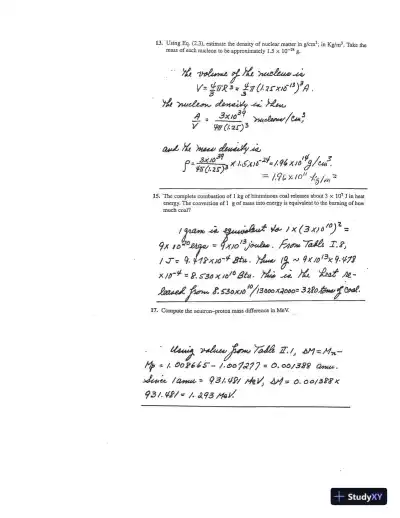 13. Using Eq. (2.3), estimate the density of nuclear matter in g/cm³; in Kg/m³. Take the
mass of each nucleon to be approximately 1.5 × 10⁻²⁴ g.
The volume of the nucleus is
V = 4/3 πR³ = 4/3 π (1.25×10⁻¹³)³ A.
The nucleon density is then
A/V = 3×10³⁹ / 4π(1.25)³ nucleons/cm³,
and the mass density is
ρ = 3×10³⁹ / 4π(1.25)³ × 1.5×10⁻²⁴ = 1.96×10¹⁴ g/cm³.
= 1.96×10¹¹ kg/m³
15. The complete combustion of 1 kg of bituminous coal releases about 3 × 10⁷ J in heat
energy. The conversion of 1 g of mass into energy is equivalent to the burning of how
much coal?
1 gram is equivalent to 1×(3×10¹⁰)² =
9×10²⁰ ergs = 9×10¹³ joules. From Table I.8,
1 J = 9.478×10⁻⁴ Btu. Thus 1g ~ 9×10¹³×9.478
×10⁻⁴ = 8.530×10¹⁰ Btu. This is the heat re-
leased from 8.530×10¹⁰/13000×2000 = 3280 tons of coal.
17. Compute the neutron-proton mass difference in MeV.
Using values from Table II.1, ΔM = Mn-
Mp = 1.008665 - 1.007277 = 0.001388 amu.
Since 1 amu = 931.481 MeV, ΔM = 0.001388×
931.481 = 1.293 MeV.
StudyXY